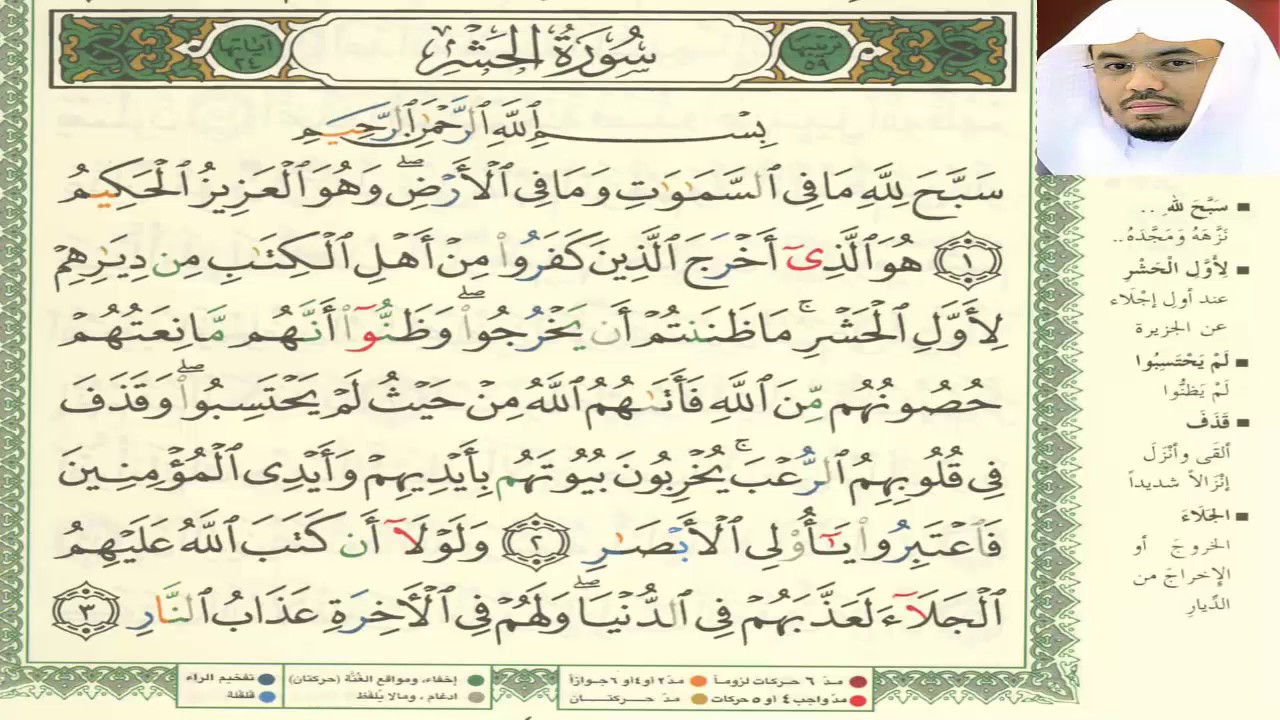 ترتيبها ٥٩
سُورَةُ الحَشْرِ
آياتها ٢٤
بِسْمِ ٱللَّهِ ٱلرَّحْمَٰنِ ٱلرَّحِيمِ
سَبَّحَ لِلَّهِ مَا فِى ٱلسَّمَٰوَٰتِ وَمَا فِى ٱلْأَرْضِ ۖ وَهُوَ ٱلْعَزِيزُ ٱلْحَكِيمُ
١ هُوَ ٱلَّذِىٓ أَخْرَجَ ٱلَّذِينَ كَفَرُوا۟ مِنْ أَهْلِ ٱلْكِتَٰبِ مِن دِيَٰرِهِمْ
لِأَوَّلِ ٱلْحَشْرِ ۚ مَا ظَنَنتُمْ أَن يَخْرُجُوا۟ ۖ وَظَنُّوٓا۟ أَنَّهُم مَّانِعَتُهُمْ
حُصُونُهُم مِّنَ ٱللَّهِ فَأَتَىٰهُمُ ٱللَّهُ مِنْ حَيْثُ لَمْ يَحْتَسِبُوا۟ ۖ وَقَذَفَ
فِى قُلُوبِهِمُ ٱلرُّعْبَ ۚ يُخْرِبُونَ بُيُوتَهُم بِأَيْدِيهِمْ وَأَيْدِى ٱلْمُؤْمِنِينَ
فَٱعْتَبِرُوا۟ يَٰٓأُو۟لِى ٱلْأَبْصَٰرِ ٢ وَلَوْلَآ أَن كَتَبَ ٱللَّهُ عَلَيْهِمُ
ٱلْجَلَآءَ لَعَذَّبَهُمْ فِى ٱلدُّنْيَا ۖ وَلَهُمْ فِى ٱلْأَخِرَةِ عَذَابُ ٱلنَّارِ ٣
■ سَبَّحَ لله ..
نَزَّهَهُ وَمَجَّدَهُ..
■ لِأوَّلِ الْحَشْرِ
عند أول إجْلَاء
عن الجزيرة
■ لَمْ يَحْتَسِبُوا
لَمْ يَظنُّوا
■ قَذَفَ
ألقَى وأنْزَلَ
إنْزَالاً شديداً
■ الجَلَاءَ
الخروجَ أو
الإخراجَ من
الدِّيارِ
مدّ ٦ حركات لزوماً
مدّ ٢ أو ٤ أو ٦ جوازاً
إخفاء، ومواقع الغُنَّة (حركتان)
تفخيم الراء
مدّ واجب ٤ أو ٥ حركات
مدّ حركتـــان
ادغام، ومالا يُلفَظ
قلقلة